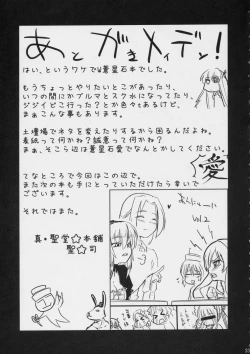 あとがきメイデン!
はい、というワケでW蒼星石本でした。
もうちょっとやりたいとこがあったり、
いつの間にかブルマとスク水になってたり、
ジジイどこ行った?とか色々とあるけど、
まぁこんな事もあります。
土壇場でネタを変えたりするから困るんだよね。
表紙って何か?誠意って何か?
まぁ、そこら辺は蒼星石愛でなんとかしてください。
愛
てなところで今回はこの辺で。
また次の本も手にとっていただけたら幸いで
ございます。
それではまた。
真・聖堂☆本舗
聖☆司
vol.2